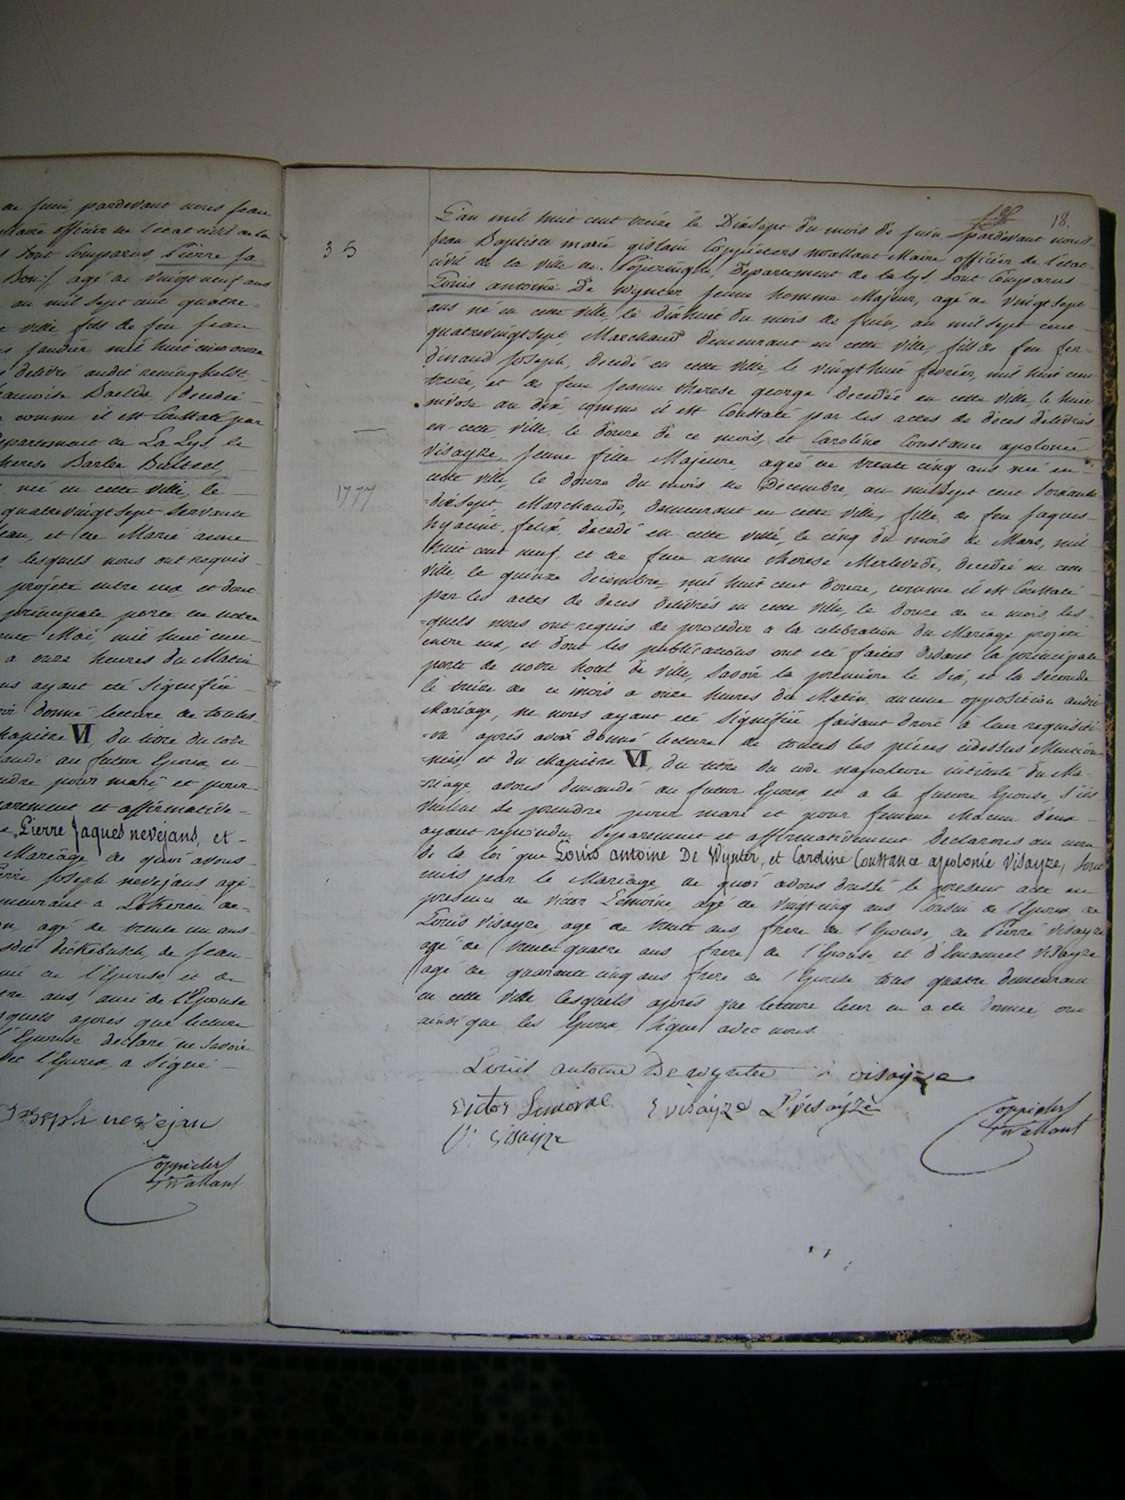 au juin pardevant nous Jean
maire officier de l'état civil de la
sont Comparus Pierre Ja
agé de vingt neuf ans
an mil sept cent quatre-
ville fils de feu Jean
janvier mil huit cent onze
delivré
decedée
comme il est Constaté par
departement de La Lys, le
therese Barbe
né en cette ville, le
quatrevingt sept servante
et de Marie anne
lesquels nous ont requis
projeté entre eux et dont
principale porte de notre
Mai, mil huit cent
a onze heures du Matin
ayant été Signifiée
donné lecture de toutes
chapitre VI, du titre du code
demandé au futur Epoux et
prendre pour mari et pour
séparement et affirmative-
Pierre Jaques nevejans, et -
Mariage de quoi avons
joseph nevejans agé
demeurant a
agé de trente un ans
Dickebusch, de Jean
de l'Epouse et de
ans, ami de l'Epouse
lesquels après que lecture
l'Epouse declaré ne Savoir
l'Epoux, a Signé -
Joseph nevejan
Coppieters
tWallant
18.
35
L'an mil huit cent treize le Dixsept du mois de Juin pardevant nous
Jean Baptiste marie gislain Coppieters tWallant Maire officier de l'etat
civil de la ville de Poperinghe, Departement de la Lys Sont Comparus
Louis antoine De Wynter jeune homme Majeur, agé de vingt sept
ans né en cette ville le dixhuit du mois de Juin, an mil sept cent
quatrevingt sept, Marchand demeurant en cette ville, fils de feu fer-
dinand joseph, decedé en cette ville, le vingthuit fevrier, mil huit cent
treize, et de feue jeanne therese george decedée en cette ville, le huit
nivose an dix comme il est Constaté par les actes de deces delivrés
en cette ville le douze de ce mois, et Caroline Constance apolonie
Visayze jeune fille Majeure agée de trente cinq ans née en
cette ville, le douze du mois de Decembre, an mil sept cent soixante
1777
dixsept Marchande, demeurant en cette ville, fille de feu Jaques
hyacint felix, decedé en cette ville, le cinq du mois de Mars, mil
huit cent neuf et de feue anne therese Merlevede, decedée en cette
ville, le quinze decembre, mil huit cent douze, comme il est Constaté
par les actes de deces delivrés en cette ville, le douze de ce mois, les-
quels nous ont requis de proceder a la celebration du Mariage projeté
entre eux, et dont les publications ont été faites devant la principale
porte de notre hotel de ville, Savoir la premiere le Six, et la seconde
le treize de ce mois a onze heures du Matin aucune opposition audit
Mariage, ne nous ayant été Signifiée faisant droit à leur requisiti-
on après avoir donné lecture de toutes les pièces cidessus Mention-
nées et du chapitre VI, du titre du code napoleon intitulé du Ma-
riage, avons demandé au futur Epoux et a la future Epouse, s'ils
veulent se prendre pour mari et pour femme chacun d'eux
ayant repondu Séparement et affirmativement Declarons au nom
de la loi que Louis antoine De Wynter, et Caroline Constance apolonie Visayze, sont
unis par le Mariage, de quoi avons dressé le present acte en
presence de victor Lemoine agé de vingtcinq ans Cousin de l'Epoux, de
Louis Visayze, agé de trente ans frere de l'Epouse, de Pierre Visayze
agé de trente quatre ans frere de l'Epouse et d'Emanuel Visayze
agé de quarante cinq ans frere de l'Epouse tous quatre demeurant
en cette ville lesquels après que lecture leur en a été donnée ont
ainsi que les Epoux Signé avec nous
Louis antoine De wynter visayze
Victor Lemoine E visayze L. visayze
P. Visayze
Coppieters
tWallant